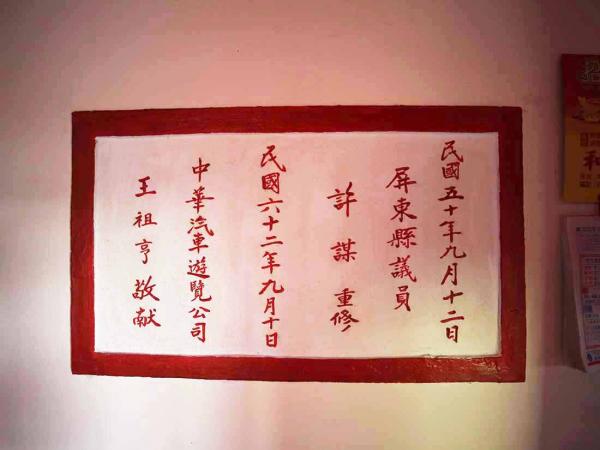 民國五十年九月十二日
屏東縣議員
許謀重修
民國六十二年九月十日
中華汽車遊覽公司
王祖亨敬献